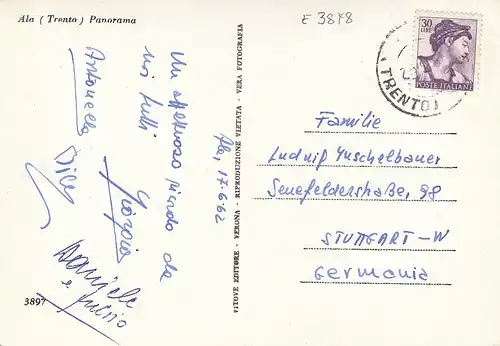 Ala ( Trento ) Panorama
E 3878
30
LIRE
POSTE ITALIANE
TRENTO
Ala, 17.6.62
Un affettuoso ricordo da
noi tutti
Giorgio
Antonella
Daniele
e
3897
VITOVE EDITORE - VERONA - RIPRODUZIONE VIETATA - VERA FOTOGRAFIA
Familie
Ludwig Tuschelbauer
Senefelderstraße, 98
STUTTGART-W
Germania